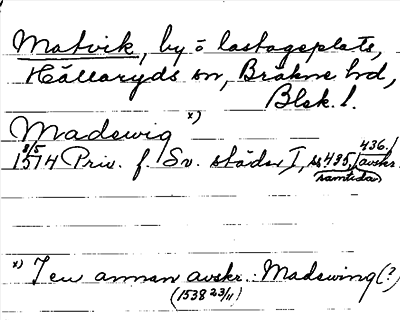 Matvik, by o lastageplats,
Hällaryds sn, Bräkne hd,
Blek. l.
Madswig x)
8/5 1514 Priv. f. Sv. städer I, ss 435, 436. / avskr.
samtida
x) I en annan avskr.: Madswing (?)
(1538 23/11)